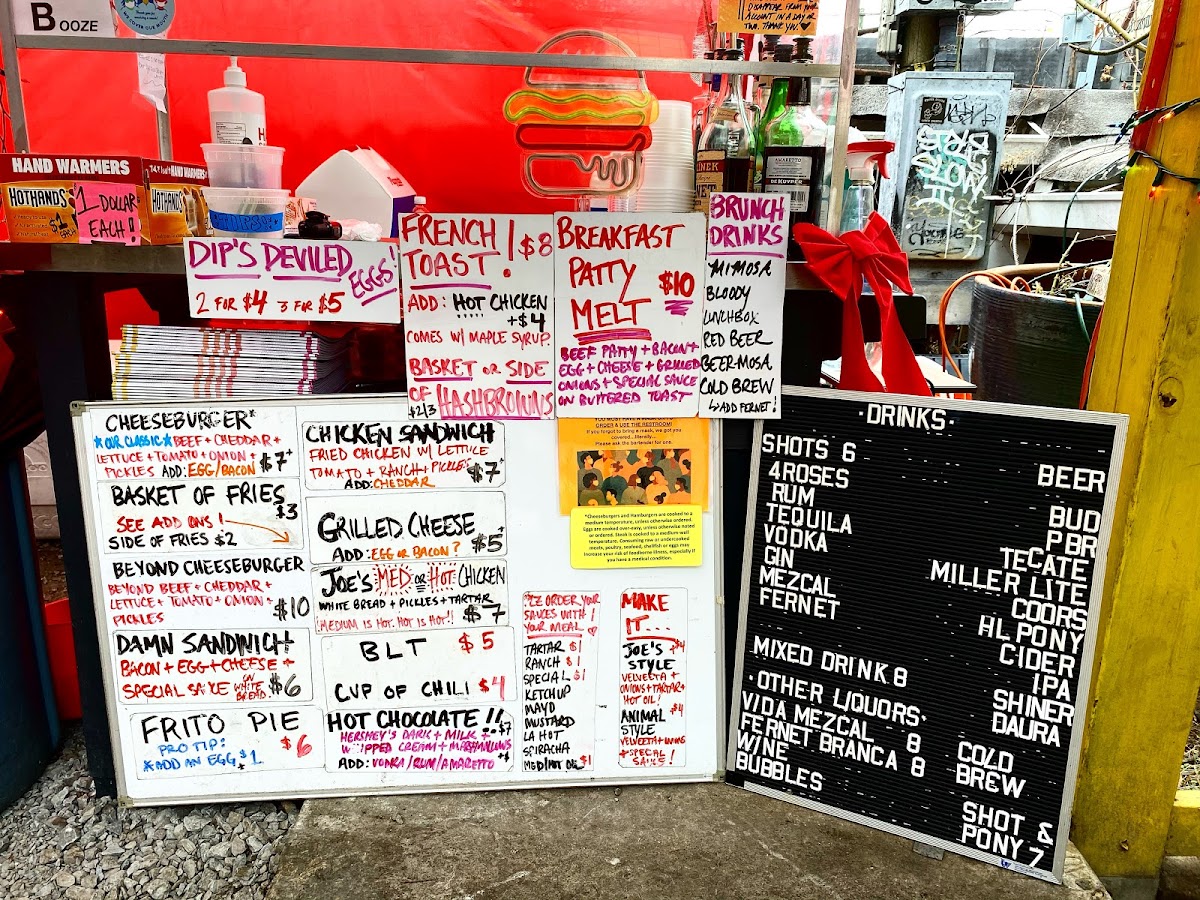 BOOZE
DISAPPEAR FROM YOUR
ACCOUNT IN A DAY OR
TWO. THANK YOU!
HAND WARMERS
HOTHANDS
$1
EACH
1 DOLLAR
EACH!
HOTHANDS
TIPS!
AMARETTO
DE KUYPER
DIP'S DEVILED
EGGS!
2 FOR $4 3 FOR $5
FRENCH
TOAST! $8
ADD: HOT CHICKEN
+$4
COMES W/ MAPLE SYRUP.
BASKET OR SIDE
OF HASHBROWNS
$2/3
BREAKFAST
PATTY $10
MELT
BEEF PATTY + BACON +
EGG + CHEESE + GRILLED
ONIONS + SPECIAL SAUCE
ON BUTTERED TOAST
BRUNCH
DRINKS
MIMOSA
BLOODY
LUNCHBOX
RED BEER
BEER-MOSA
COLD BREW
↳ADD FERNET!
CHEESEBURGER*
*OUR CLASSIC* BEEF + CHEDDAR +
LETTUCE + TOMATO + ONION +
PICKLES ADD: EGG/BACON $7+
BASKET OF FRIES
$3
SEE ADD ONS!
SIDE OF FRIES $2
BEYOND CHEESEBURGER
BEYOND BEEF + CHEDDAR +
LETTUCE + TOMATO + ONION +
PICKLES $10
DAMN SANDWICH
BACON + EGG + CHEESE +
SPECIAL SAUCE ON WHITE BREAD $6
FRITO PIE
PRO TIP: $6
*ADD AN EGG $1
CHICKEN SANDWICH
FRIED CHICKEN W/ LETTUCE
TOMATO + RANCH + PICKLES $7+
ADD: CHEDDAR
GRILLED CHEESE
ADD: EGG OR BACON? $5
JOE'S MED OR HOT CHICKEN
WHITE BREAD + PICKLES + TARTAR
MEDIUM IS HOT. HOT IS HOT!! $7
BLT $5
CUP OF CHILI $4
HOT CHOCOLATE!! $7
HERSHEY'S DARK + MILK +
WHIPPED CREAM + MARSHMALLOWS
ADD: VODKA/RUM/AMARETTO
ORDER & USE THE RESTROOM!
If you forgot to bring a mask, we got you
covered... literally...
Please ask the bartender for one.
*Cheeseburgers and Hamburgers are cooked to a
medium temperature, unless otherwise ordered.
Eggs are cooked over-easy, unless otherwise noted
or ordered. Steak is cooked to a medium-well
temperature. Consuming raw or undercooked
meats, poultry, seafood, shellfish or eggs may
increase your risk of foodborne illness, especially if
you have a medical condition.
PLZ ORDER YOUR
SAUCES WITH
YOUR MEAL
TARTAR $1
RANCH $1
SPECIAL $1
KETCHUP
MAYO
MUSTARD
LA HOT
SRIRACHA
MED/HOT OIL $1
MAKE
IT...
JOE'S $4
STYLE
VELVEETA +
ONIONS + TARTAR +
HOT OIL!
ANIMAL $4
STYLE
VELVEETA + ONIONS
+ SPECIAL
SAUCE!
·DRINKS·
SHOTS 6
4ROSES
RUM
TEQUILA
VODKA
GIN
MEZCAL
FERNET
MIXED DRINK 8
·OTHER LIQUORS·
VIDA MEZCAL 8
FERNET BRANCA 8
WINE
BUBBLES
BEER
BUD
PBR
TECATE
MILLER LITE
COORS
HL PONY
CIDER
IPA
SHINER
DAURA
COLD
BREW
SHOT &
PONY 7